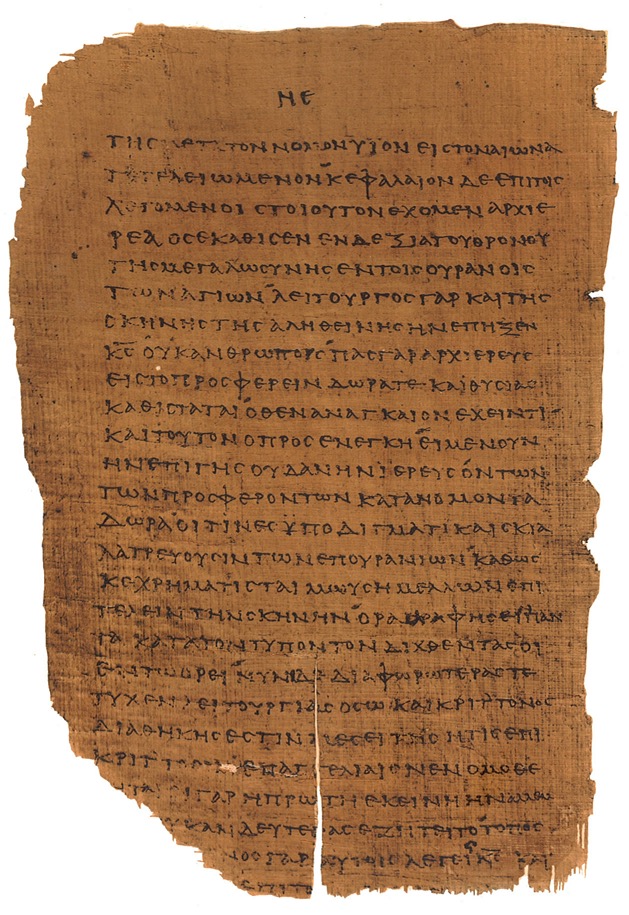 ΝΕ
ΤΗΣ ΜΕΤΑ ΤΟΝ ΝΟΜΟΝ ΥΙΟΝ ΕΙΣ ΤΟΝ ΑΙΩΝΑ
ΤΕΤΕΛΕΙΩΜΕΝΟΝ ΚΕΦΑΛΑΙΟΝ ΔΕ ΕΠΙ ΤΟΙΣ
ΛΕΓΟΜΕΝΟΙΣ ΤΟΙΟΥΤΟΝ ΕΧΟΜΕΝ ΑΡΧΙΕ
ΡΕΑ ΟΣ ΕΚΑΘΙΣΕΝ ΕΝ ΔΕΞΙΑ ΤΟΥ ΘΡΟΝΟΥ
ΤΗΣ ΜΕΓΑΛΩΣΥΝΗΣ ΕΝ ΤΟΙΣ ΟΥΡΑΝΟΙΣ
ΤΩΝ ΑΓΙΩΝ ΛΕΙΤΟΥΡΓΟΣ ΓΑΡ ΚΑΙ ΤΗΣ
ΣΚΗΝΗΣ ΤΗΣ ΑΛΗΘΕΙΝΗΣ ΗΝ ΕΠΗΞΕΝ
ΚΣ ΟΥΚ ΑΝΘΡΩΠΟΣ ΠΑΣ ΓΑΡ ΑΡΧΙΕΡΕΥΣ
ΕΙΣ ΤΟ ΠΡΟΣΦΕΡΕΙΝ ΔΩΡΑ ΤΕ ΚΑΙ ΘΥΣΙΑΣ
ΚΑΘΙΣΤΑΤΑΙ ΟΘΕΝ ΑΝΑΓΚΑΙΟΝ ΕΧΕΙΝ ΤΙ
ΚΑΙ ΤΟΥΤΟΝ Ο ΠΡΟΣΕΝΕΓΚΗ ΕΙ ΜΕΝ ΟΥΝ
ΗΝ ΕΠΙ ΓΗΣ ΟΥΔ ΑΝ ΗΝ ΙΕΡΕΥΣ ΟΝΤΩΝ
ΤΩΝ ΠΡΟΣΦΕΡΟΝΤΩΝ ΚΑΤΑ ΝΟΜΟΝ ΤΑ
ΔΩΡΑ ΟΙΤΙΝΕΣ ΫΠΟΔΙΓΜΑΤΙ ΚΑΙ ΣΚΙΑ
ΛΑΤΡΕΥΟΥΣΙΝ ΤΩΝ ΕΠΟΥΡΑΝΙΩΝ ΚΑΘΩΣ
ΚΕΧΡΗΜΑΤΙΣΤΑΙ ΜΩΥΣΗ ΜΕΛΛΩΝ ΕΠΙ
ΤΕΛΕΙΝ ΤΗΝ ΣΚΗΝΗΝ ΟΡΑ ΓΡΑΦΗΣΕΙ ΠΑΝ
ΤΑ ΚΑΤΑ ΤΟΝ ΤΥΠΟΝ ΤΟΝ ΔΙΧΘΕΝΤΑ ΣΟΙ
ΕΝ ΤΩ ΟΡΕΙ ΝΥΝ ΔΕ ΔΙΑΦΩΡΩΤΕΡΑΣ ΤΕ
ΤΥΧΕΝ ΛΕΙΤΟΥΡΓΙΑΣ ΟΣΩ ΚΑΙ ΚΡΙΤΤΟΝΟΣ
ΔΙΑΘΗΚΗΣ ΕΣΤΙΝ ΜΕΣΕΙΤΗΣ ΗΤΙΣ ΕΠΙ
ΚΡΙΤΤΟΣΙΝ ΕΠΑΓΓΕΛΙΑΙΣ ΝΕΝΟΜΟΘΕ
ΓΑΡ Η ΠΡΩΤΗ ΕΚΕΙΝΗ ΗΝ
ΟΥΚ ΑΝ ΔΕΥΤΕΡΑΣ ΕΖΗΤΕΙΤΟ ΤΟΠΟΣ
ΓΑΡ ΑΥΤΟΙΣ ΛΕΓΕΙ ΚΑΙ